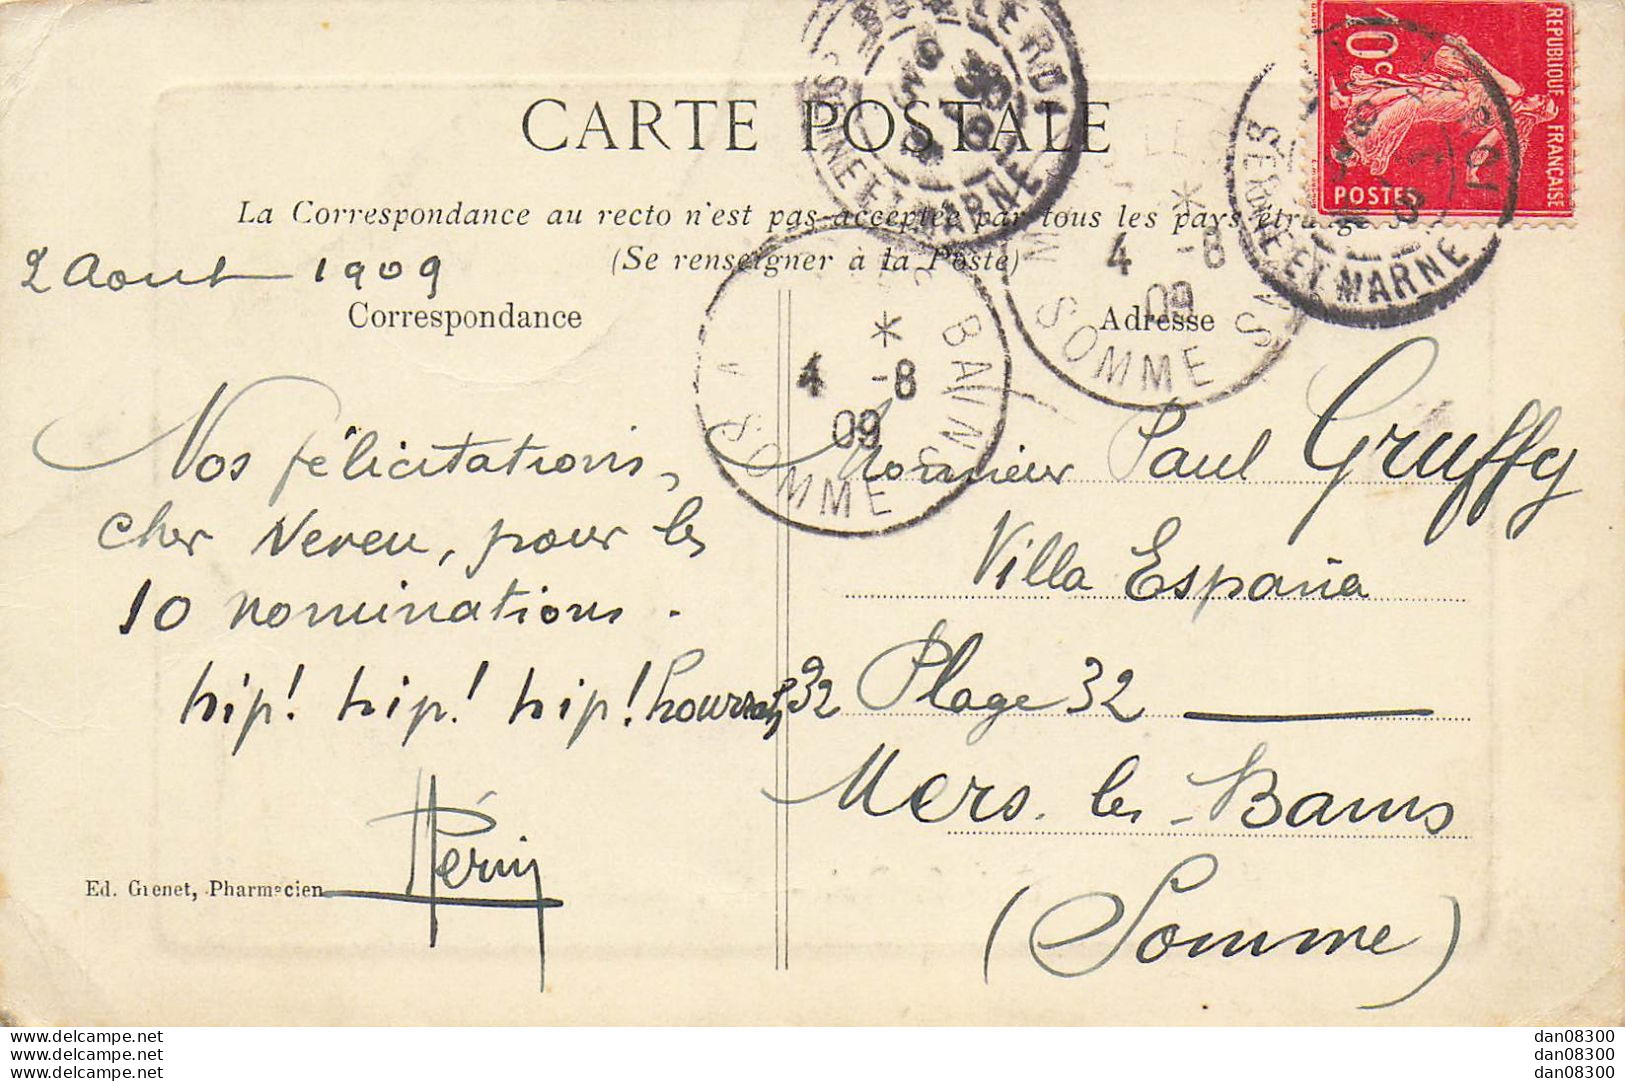 CARTE POSTALE
La Correspondance au recto n'est pas acceptée par tous les pays étrangers
(Se renseigner à la Poste)
2 Aout 1909
Correspondance
Adresse
REPUBLIQUE FRANÇAISE
10c
POSTES
SEINE ET MARNE
4 -8
09
SOMME
BAINS
4 -8
09
SOMME
Nos félicitations,
cher Neveu, pour les
10 nominations.
hip! hip! hip! hourrah
Monsieur Paul Gruffy
Villa España
32 Plage 32
Mers-les-Bains
(Somme)
Ed. Grenet, Pharmacien
www.delcampe.net
www.delcampe.net
www.delcampe.net
dan08300
dan08300
dan08300